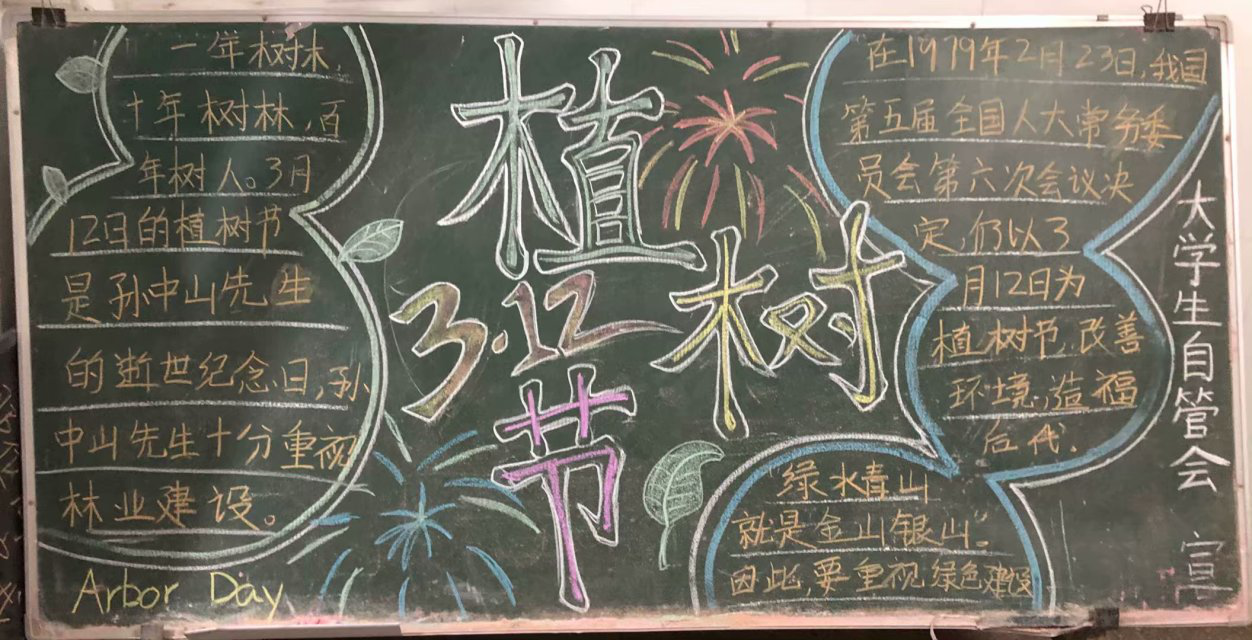 一年树木,
十年树林,百
年树人。3月
12日的植树节
是孙中山先生
的逝世纪念日,孙
中山先生十分重视
林业建设。
Arbor Day
植树节
3·12
在1979年2月23日,我国
第五届全国人大常务委
员会第六次会议决
定,仍以3
月12日为
植树节,改善
环境,造福
后代.
“绿水青山
就是金山银山”。
因此,要重视绿色建设
大学生自管会 宣